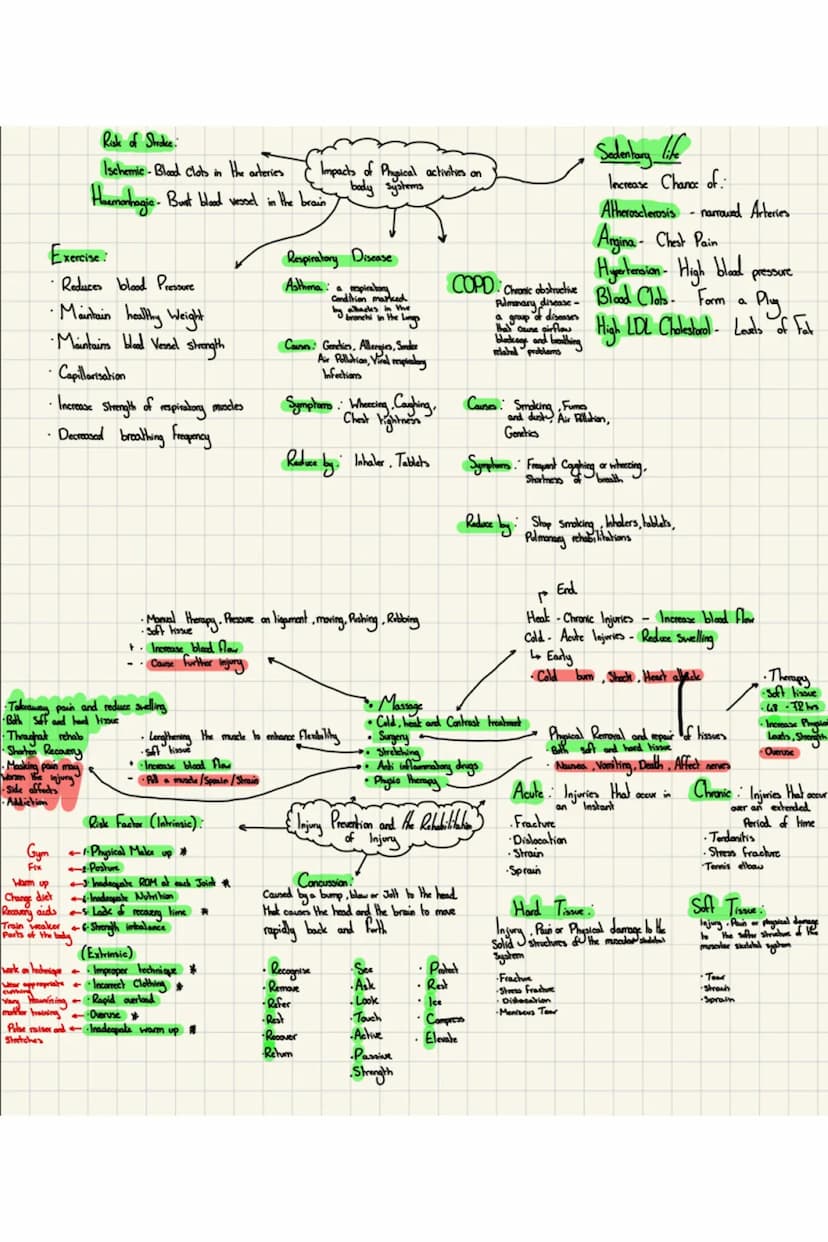 Impacts of Physical activities on
body systems
Risk of Stroke:
Ischemic - Blood Clots in the arteries
Haemorrhagic - Burst blood vessel in the brain
Sedentary life
Increase Chance of:
Atherosclerosis - narrowed Arteries
Angina - Chest Pain
Hypertension - High blood pressure
Blood Clots - Form a Plug
High LDL Cholesterol - Levels of Fat
Exercise:
· Reduces blood Pressure
· Maintain healthy Weight
· Maintains blood Vessel strength
· Capillarisation
· Increase Strength of respiratory muscles
· Decreased breathing frequency
Respiratory Disease
Asthma: a respiratory
condition marked
by attacks in the
bronchi in the lungs
Causes: Genetics, Allergies, Smoke
Air Pollution, Viral respiratory
Infections
Symptoms: Wheezing, Coughing,
Chest tightness
Reduce by: Inhaler, Tablets
COPD: Chronic obstructive
Pulmonary disease -
a group of diseases
that cause airflow
blockage and breathing
related problems
Causes: Smoking, Fumes
and dust, Air Pollution,
Genetics
Symptoms: Frequent Coughing or wheezing,
Shortness of breath
Reduce by: Stop smoking, Inhalers, tablets,
Pulmonary rehabilitations
· Manual therapy, Pressure on ligament, moving, Pushing, Rubbing
· Soft tissue
+ · Increase blood flow
- · Cause further injury
End
Heat - Chronic Injuries - Increase blood flow
Cold - Acute Injuries - Reduce Swelling
Early
· Cold burn, Shock, Heart attack
· Therapy
· Soft tissue
· 48 - 72 hrs
· Increase Physical
Levels, Strength
· Overuse
· Massage
· Cold, heat and Contrast treatment
· Surgery
· Stretching
· Anti inflammatory drugs
· Physio therapy
Physical Removal and repair of tissues
· Both soft and hard tissue
· Nausea, Vomiting, Death, Affect nerves
· Lengthening the muscle to enhance Flexibility
· Soft tissue
+ · Increase blood flow
- · Pull a muscle/Sprain/Strain
· Takeaway pain and reduce swelling
· Both Soft and hard tissue
· Throughout rehab
· Shorten Recovery
· Masking pain may
worsen the injury
· Side affects
· Addiction
Injury Prevention and the Rehabilitation
of Injury
Risk Factor (Intrinsic):
Gym ← 1· Physical Make up *
Fix ← 2· Posture
Warm up ← 3· Inadequate ROM at each Joint *
Change diet ← 4· Inadequate Nutrition
Recovery aids ← 5· Lack of recovery time *
Train weaker
Parts of the body ← 6· Strength imbalance
(Extrinsic)
Work on technique ← · Improper technique *
Wear appropriate
clothing ← · Incorrect Clothing *
· Rapid overload
← · Overuse *
Pulse raiser and
Stretches ← · Inadequate warm up *
Concussion:
Caused by a bump, blow or Jolt to the head
that causes the head and the brain to move
rapidly back and forth
· Recognise
· Remove
· Refer
· Rest
· Recover
· Return
· See
· Ask
· Look
· Touch
· Active
· Passive
· Strength
· Protect
· Rest
· Ice
· Compress
· Elevate
Acute: Injuries that occur in
an Instant
· Fracture
· Dislocation
· Strain
· Sprain
Chronic: Injuries that occur
over an extended
Period of time
· Tendonitis
· Stress fracture
· Tennis elbow
Hard Tissue:
Injury, Pain or Physical damage to the
Solid structures of the muscular skeletal
System
· Fracture
· Stress fracture
· Dislocation
· Meniscus Tear
Soft Tissue:
Injury, Pain or physical damage
to the softer structure of the
muscular skeletal system
· Tear
· Strain
· Sprain